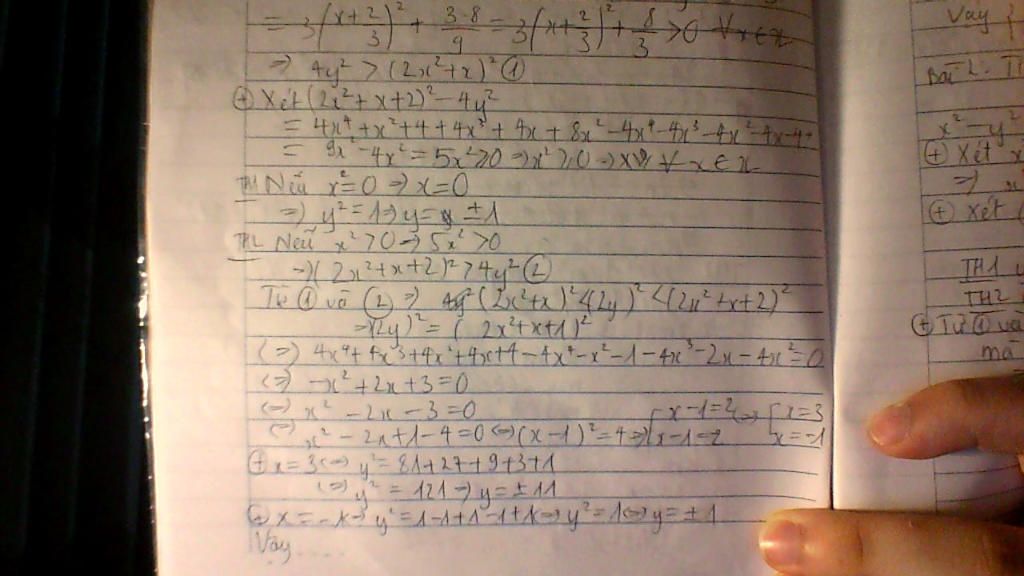 = 3(x+2/3)² + 3·8/9 = 3(x+2/3)² + 8/3 >0 ∀x∈z
=> 4y² > (2x²+x)² ①
⊕ Xét (2x²+x+2)² - 4y²
= 4x⁴+x²+4+4x³+4x+8x²-4x⁴-4x³-4x²-4x-4
= 9x²-4x² = 5x² ≥0 => x² ≥0 => ∀ x∈z
TH1 Nếu x²=0 => x=0
=> y²=1 => y= ±1
TH2 Nếu x²>0 => 5x²>0
=> (2x²+x+2)² > 4y² ②
Từ ① và ② => (2x²+x)² < (2y)² < (2x²+x+2)²
=> (2y)² = (2x²+x+1)²
<=> 4x⁴+4x³+4x²+4x+4-4x⁴-x²-1-4x³-2x-4x²=0
<=> -x²+2x+3=0
<=> x²-2x-3=0
<=> x²-2x+1-4=0 <=> (x-1)²=4 => [x-1=2 <=> [x=3
x-1=-2 x=-1
⊕ x=3 <=> y²=81+27+9+3+1
<=> y²=121 => y=±11
⊕ x=-1 => y²=1-1+1-1+1 <=> y²=1 <=> y=±1
Vậy ....
Vậy {
Bài 2:
x²-y²
⊕ Xét x
=>
⊕ Xét (
TH1
TH2
⊕ Từ ① và
mà